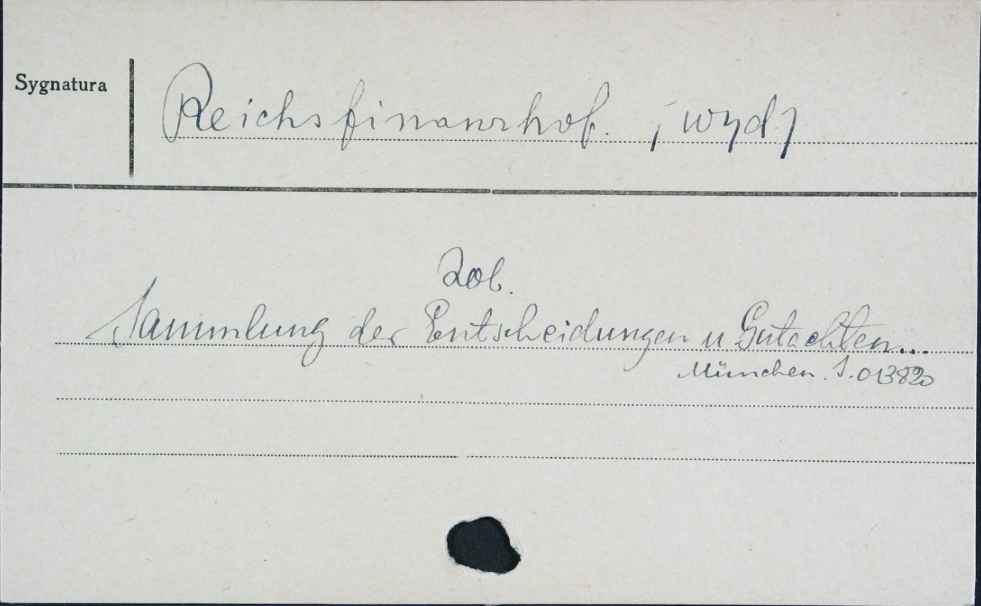 Sygnatura
Reichsfinanzhof. /wyd/
Zob.
Sammlung der Entscheidungen u Gutachten...
München. S. 013820